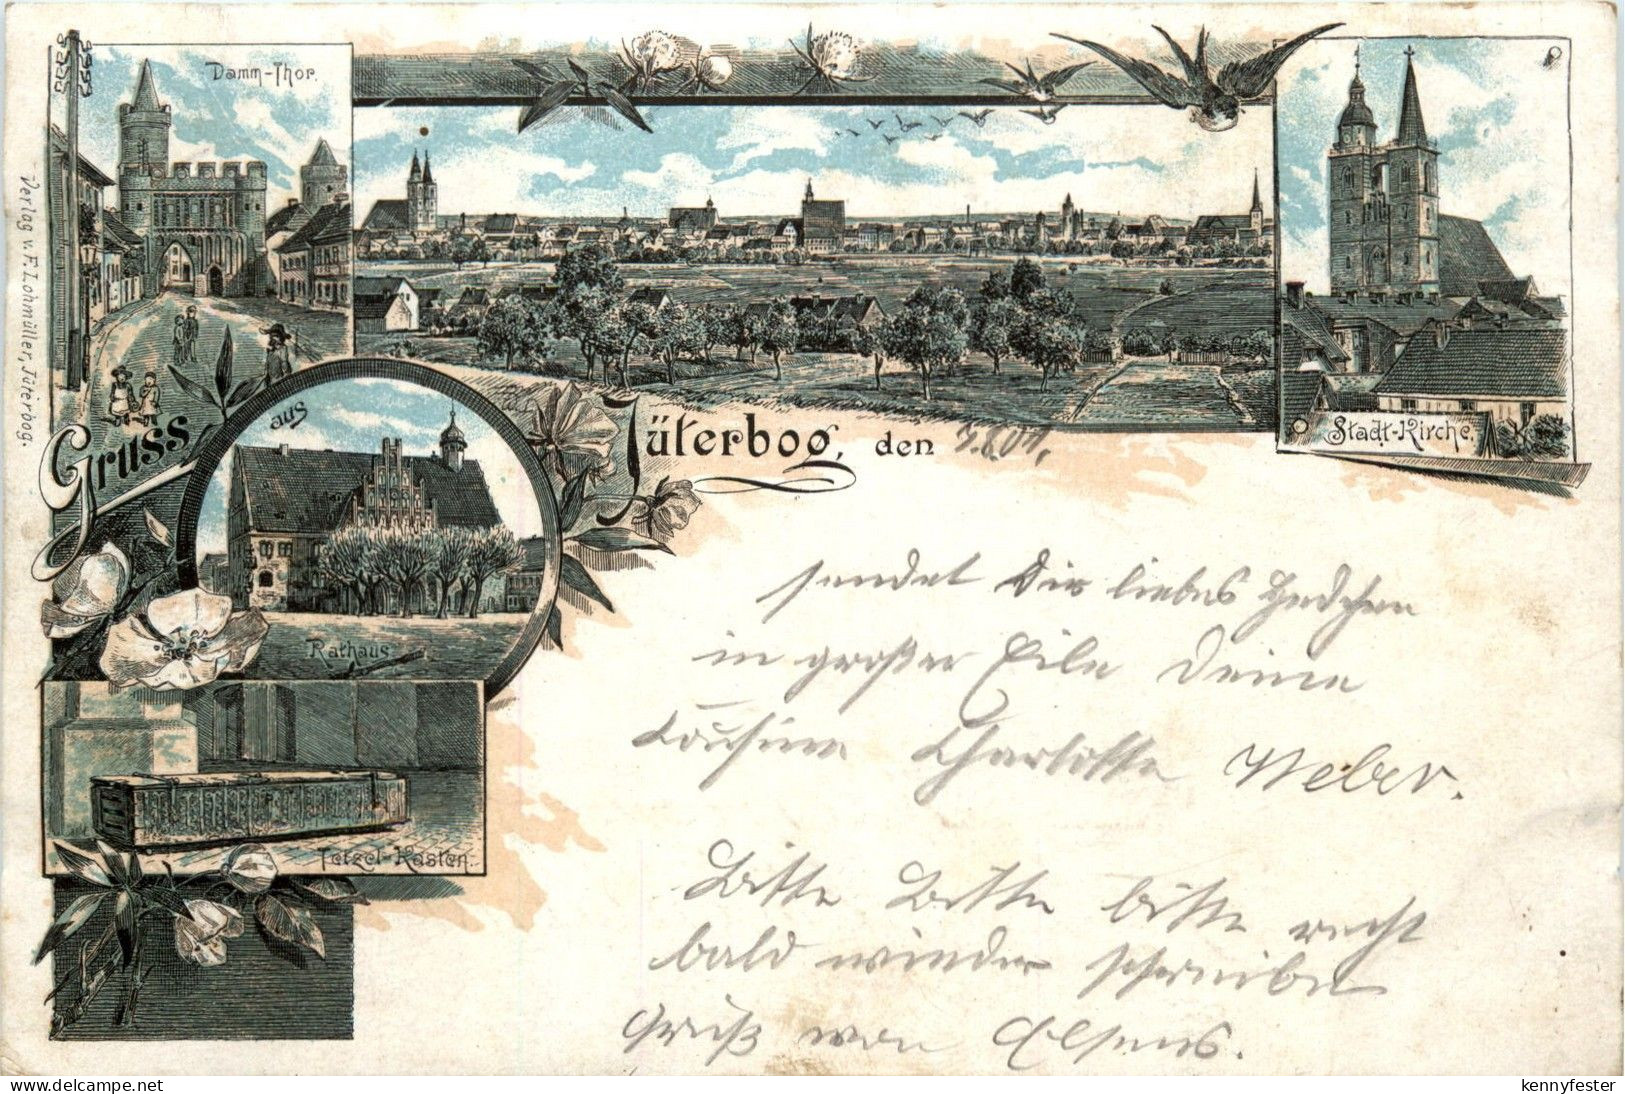 Damm-Thor.
Verlag v. F. Lohmüller, Jüterbog.
Gruss
aus
Jüterbog, den 7.8.01.
Stadt-Kirche.
Rathaus
Tetzel-Kasten.
sendet Dir liebes
in großer Eile Deine
Cousine Charlotte Weber.
Bitte Bitte bitte recht
bald wieder schreiben
Gruß von Elsens.
delcampe.net
kennyfester